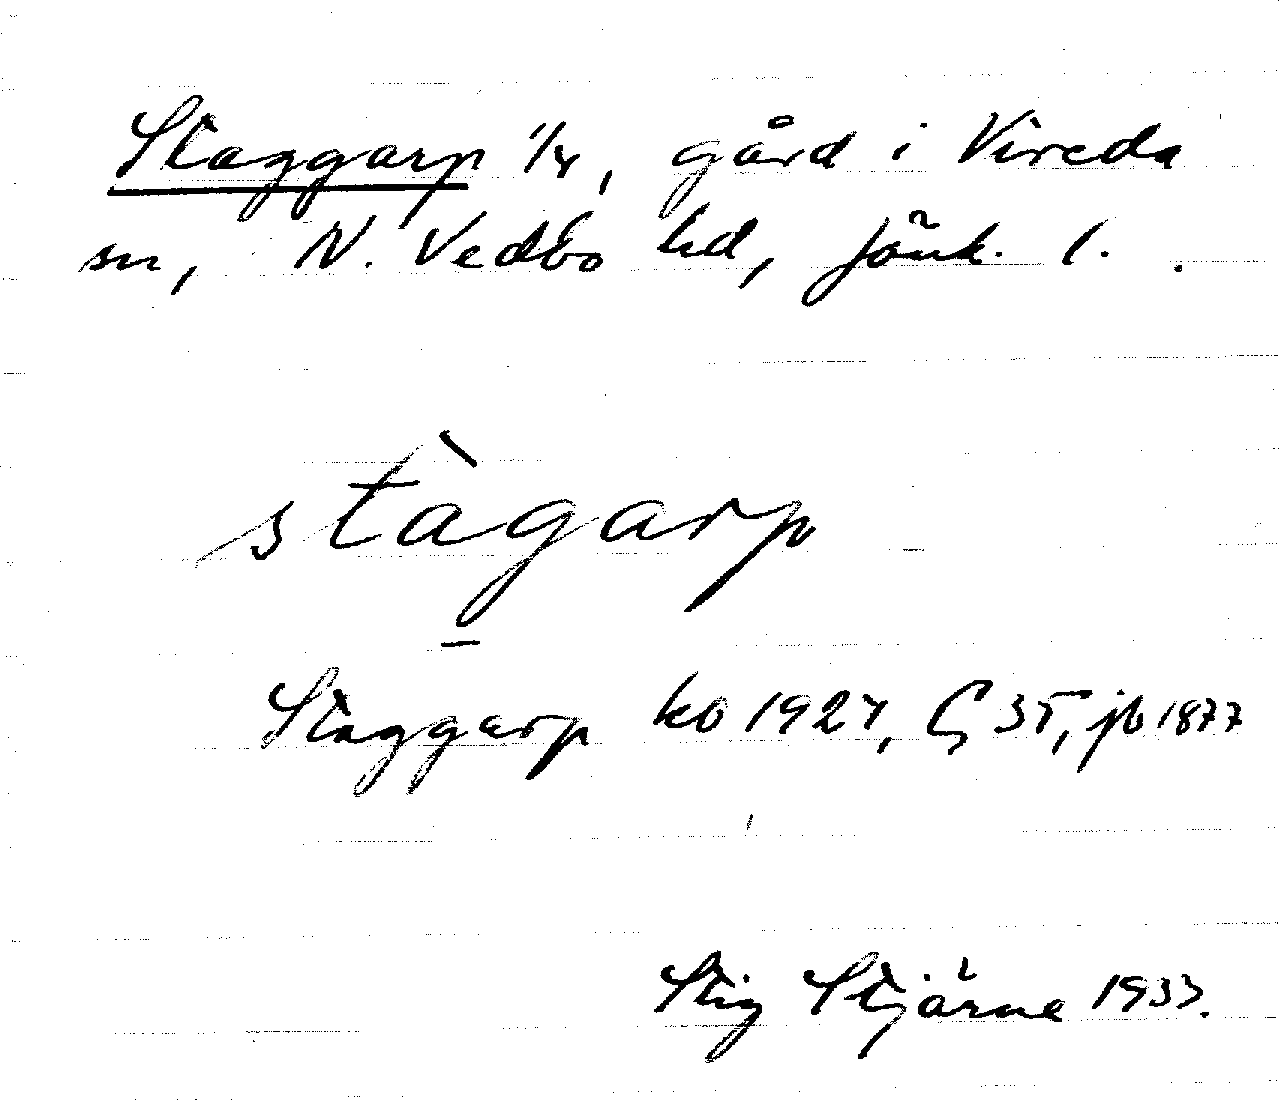 Staggarp 1/4, gård i Vireda
sn, N. Vedbo hd, Jönk. l.
stàgarp
Staggarp ko 1924, G 35, jb 1877
Stig Stjärne 1933.